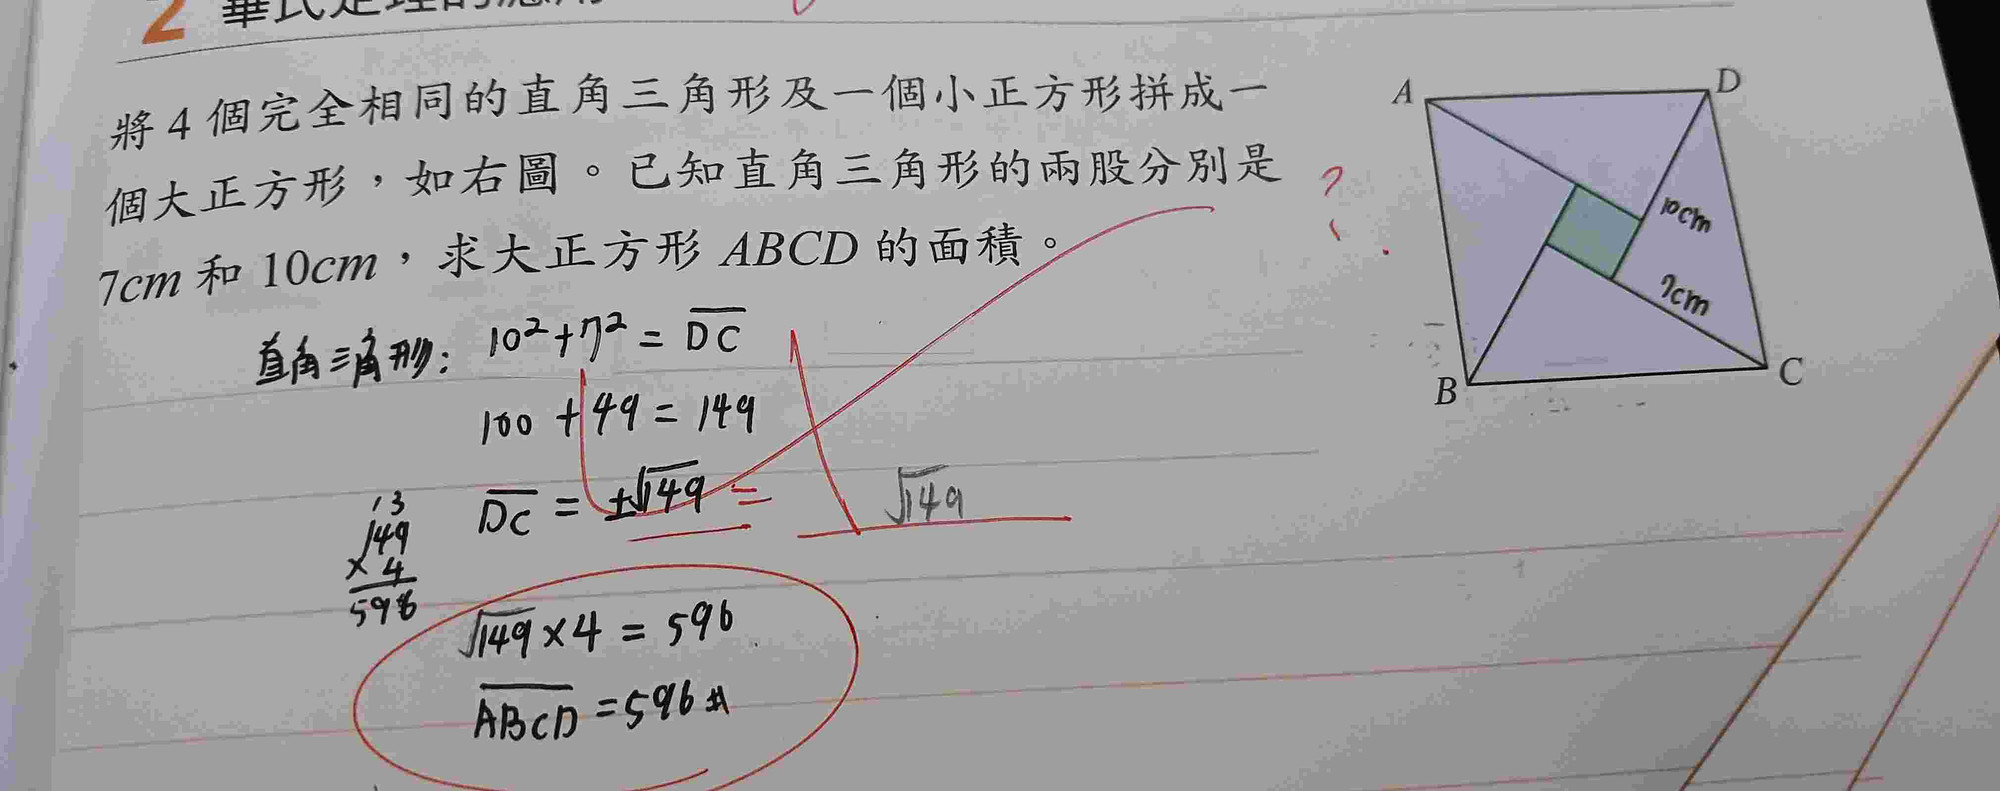 2 畢氏定理的應用
將4個完全相同的直角三角形及一個小正方形拼成一
個大正方形，如右圖。已知直角三角形的兩股分別是
7cm 和 10cm，求大正方形 ABCD 的面積。
A
D
10cm
7cm
B
C
?
直角三角形: 10²+7² = DC
100 + 49 = 149
DC = ±√149 =
√149
13
√149
× 4
596
√149 × 4 = 596
ABCD = 596 #